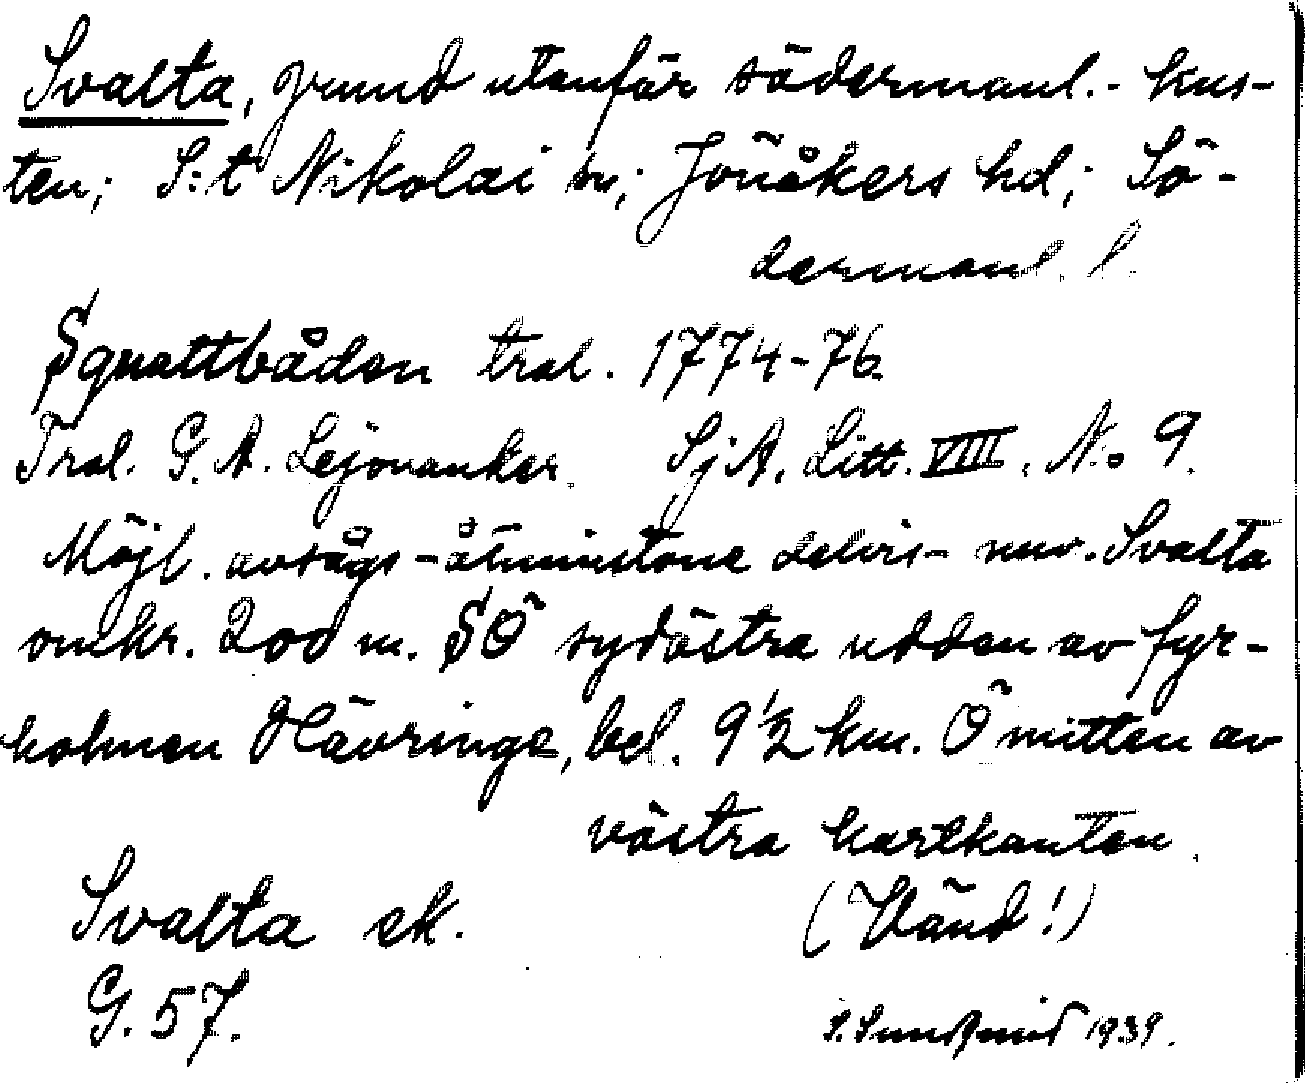 Svalta, grund utanför södermanl.- kus-
ten; S:t Nikolai sn; Jönåkers hd; Sö-
dermanl. l.
Sqvattbåden tral. 1774-76.
Tral. G. A. Lejonanker. SjA. Litt. VIII. No 9.
Möjl. avsågs - åtminstone delvis - nuv. Svalta
omkr. 200 m. SÖ sydöstra udden av fyr-
holmen Hävringe, bel. 9 1/2 km. Ö mitten av
västra kartkanten.
Svalta ek. (Vänd!)
G. 57. 1939.